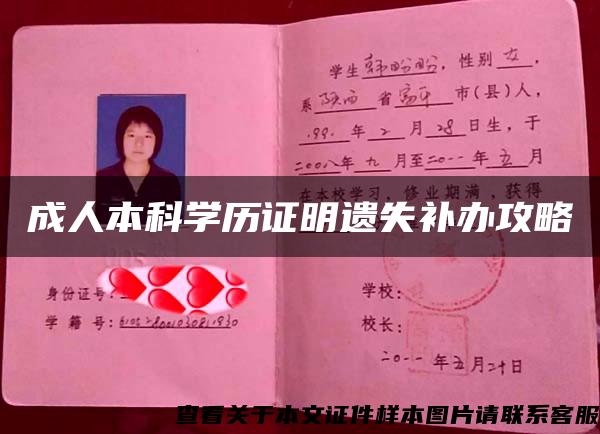 学生韩盼盼，性别女，
系陕西省富平市(县)人，
199 年2月28日生，于
二00八年九月至二0一一年五月
在本校学习，修业期满，获得
成人本科学历证明遗失补办攻略
身份证号：
学籍号：
学校：
校长：
二0一一年五月二十日
查看关于本文证件样本图片请联系客服